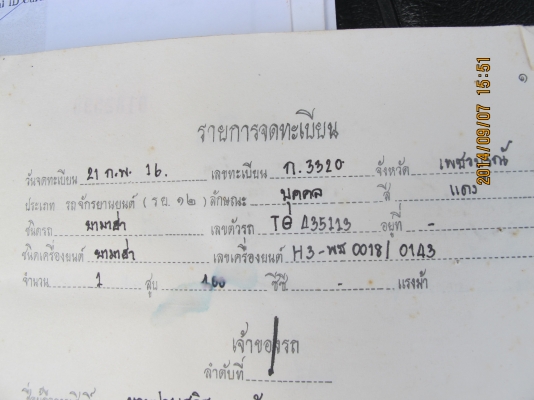 ๑
รายการจดทะเบียน
วันจดทะเบียน 21 ก.พ. 16. เลขทะเบียน ก.3320 จังหวัด เพชรบูรณ์
ประเภท รถจักรยานยนต์ (รย.๑๒) ลักษณะ บุคคล สี แดง
ชนิดรถ ยามาฮ่า เลขตัวรถ 435113 อยู่ที่ -
ชนิดเครื่องยนต์ ยามาฮ่า เลขเครื่องยนต์ H3-พช 0018/0143
จำนวน 1 สูบ 100 ซีซี - แรงม้า
เจ้าของรถ
ลำดับที่ 1
2014/09/07 15:51